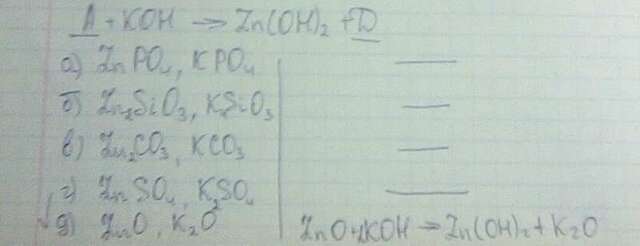 A + KOH → Zn(OH)₂ + D
а) ZnPO₄, KPO₄ —
б) Zn₂SiO₃, KSiO₃ —
в) Zn₂CO₃, KCO₃ —
г) ZnSO₄, K₂SO₄ —
д) ZnO, K₂O ZnO + KOH → Zn(OH)₂ + K₂O